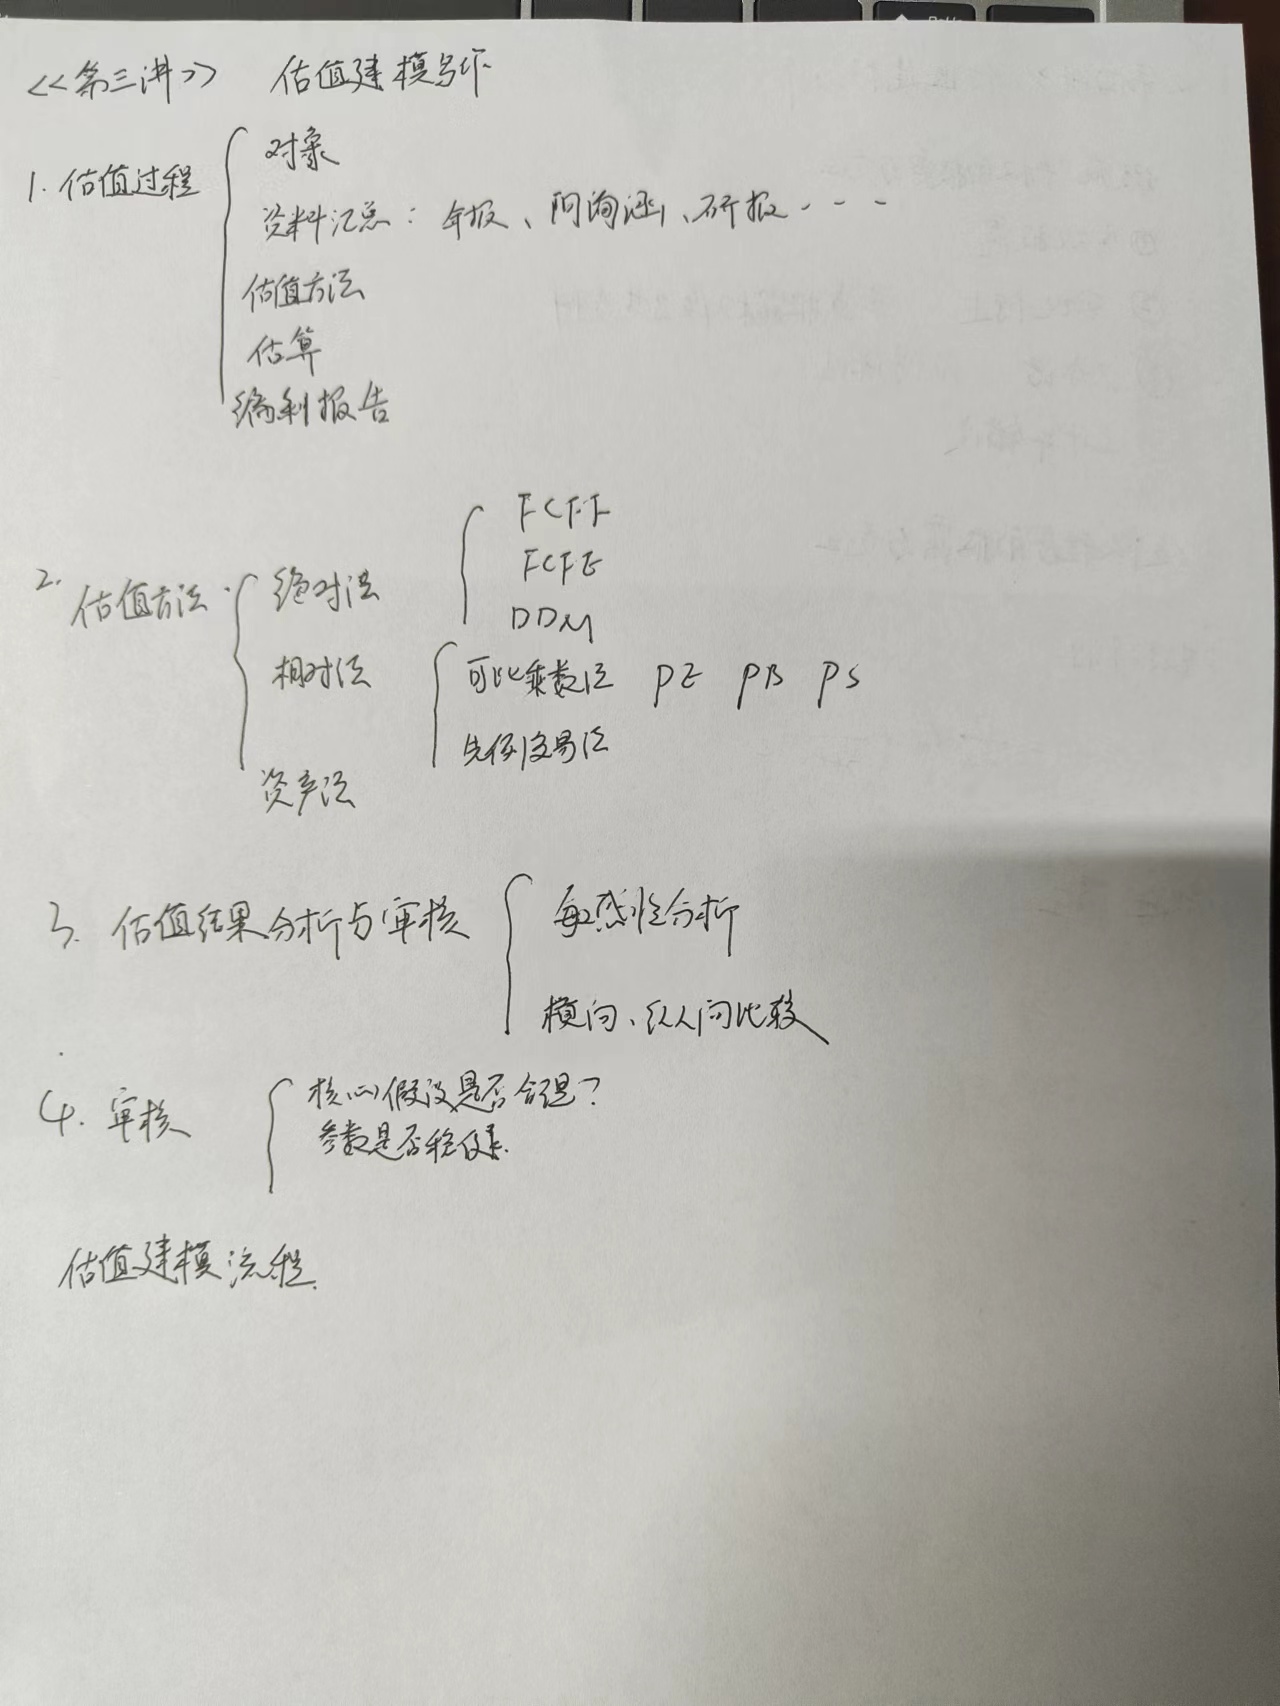 <<第三讲>> 估值建模写作
1. 估值过程
对象
资料汇总：年报、问询函、研报...
估值方法
估算
编制报告
2. 估值方法
绝对法
FCFF
FCFE
DDM
相对法
可比乘数法 PE PB PS
先例交易法
资产法
3. 估值结果分析与审核
敏感性分析
横向、纵向比较
4. 审核
核心假设是否合理?
参数是否稳健.
估值建模流程.